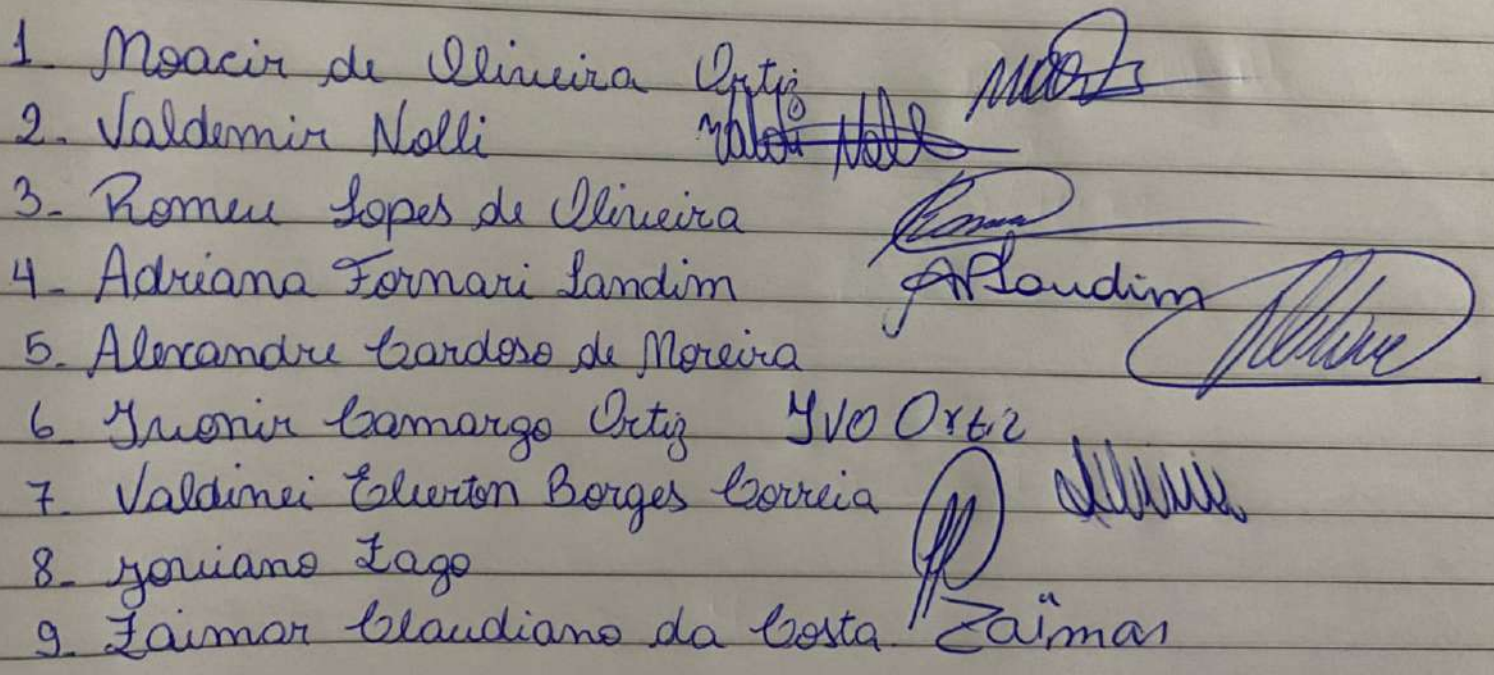 1. Moacir de Oliveira Ortiz
2. Valdemir Nolli Valdi Nolli
3- Romeu Lopes de Oliveira Romeu
4- Adriana Fornari Landim AFLandim
5. Alexandre Cardoso de Moreira
6. Ivonir Camargo Ortiz IVO Ortiz
7. Valdinei Elerton Borges Correia
8- Joviano Zago
9. Zaimar Claudiano da Costa Zaimar